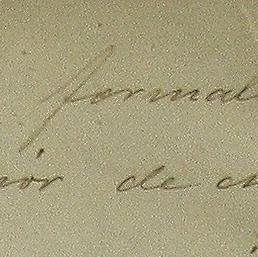 formal
nór de